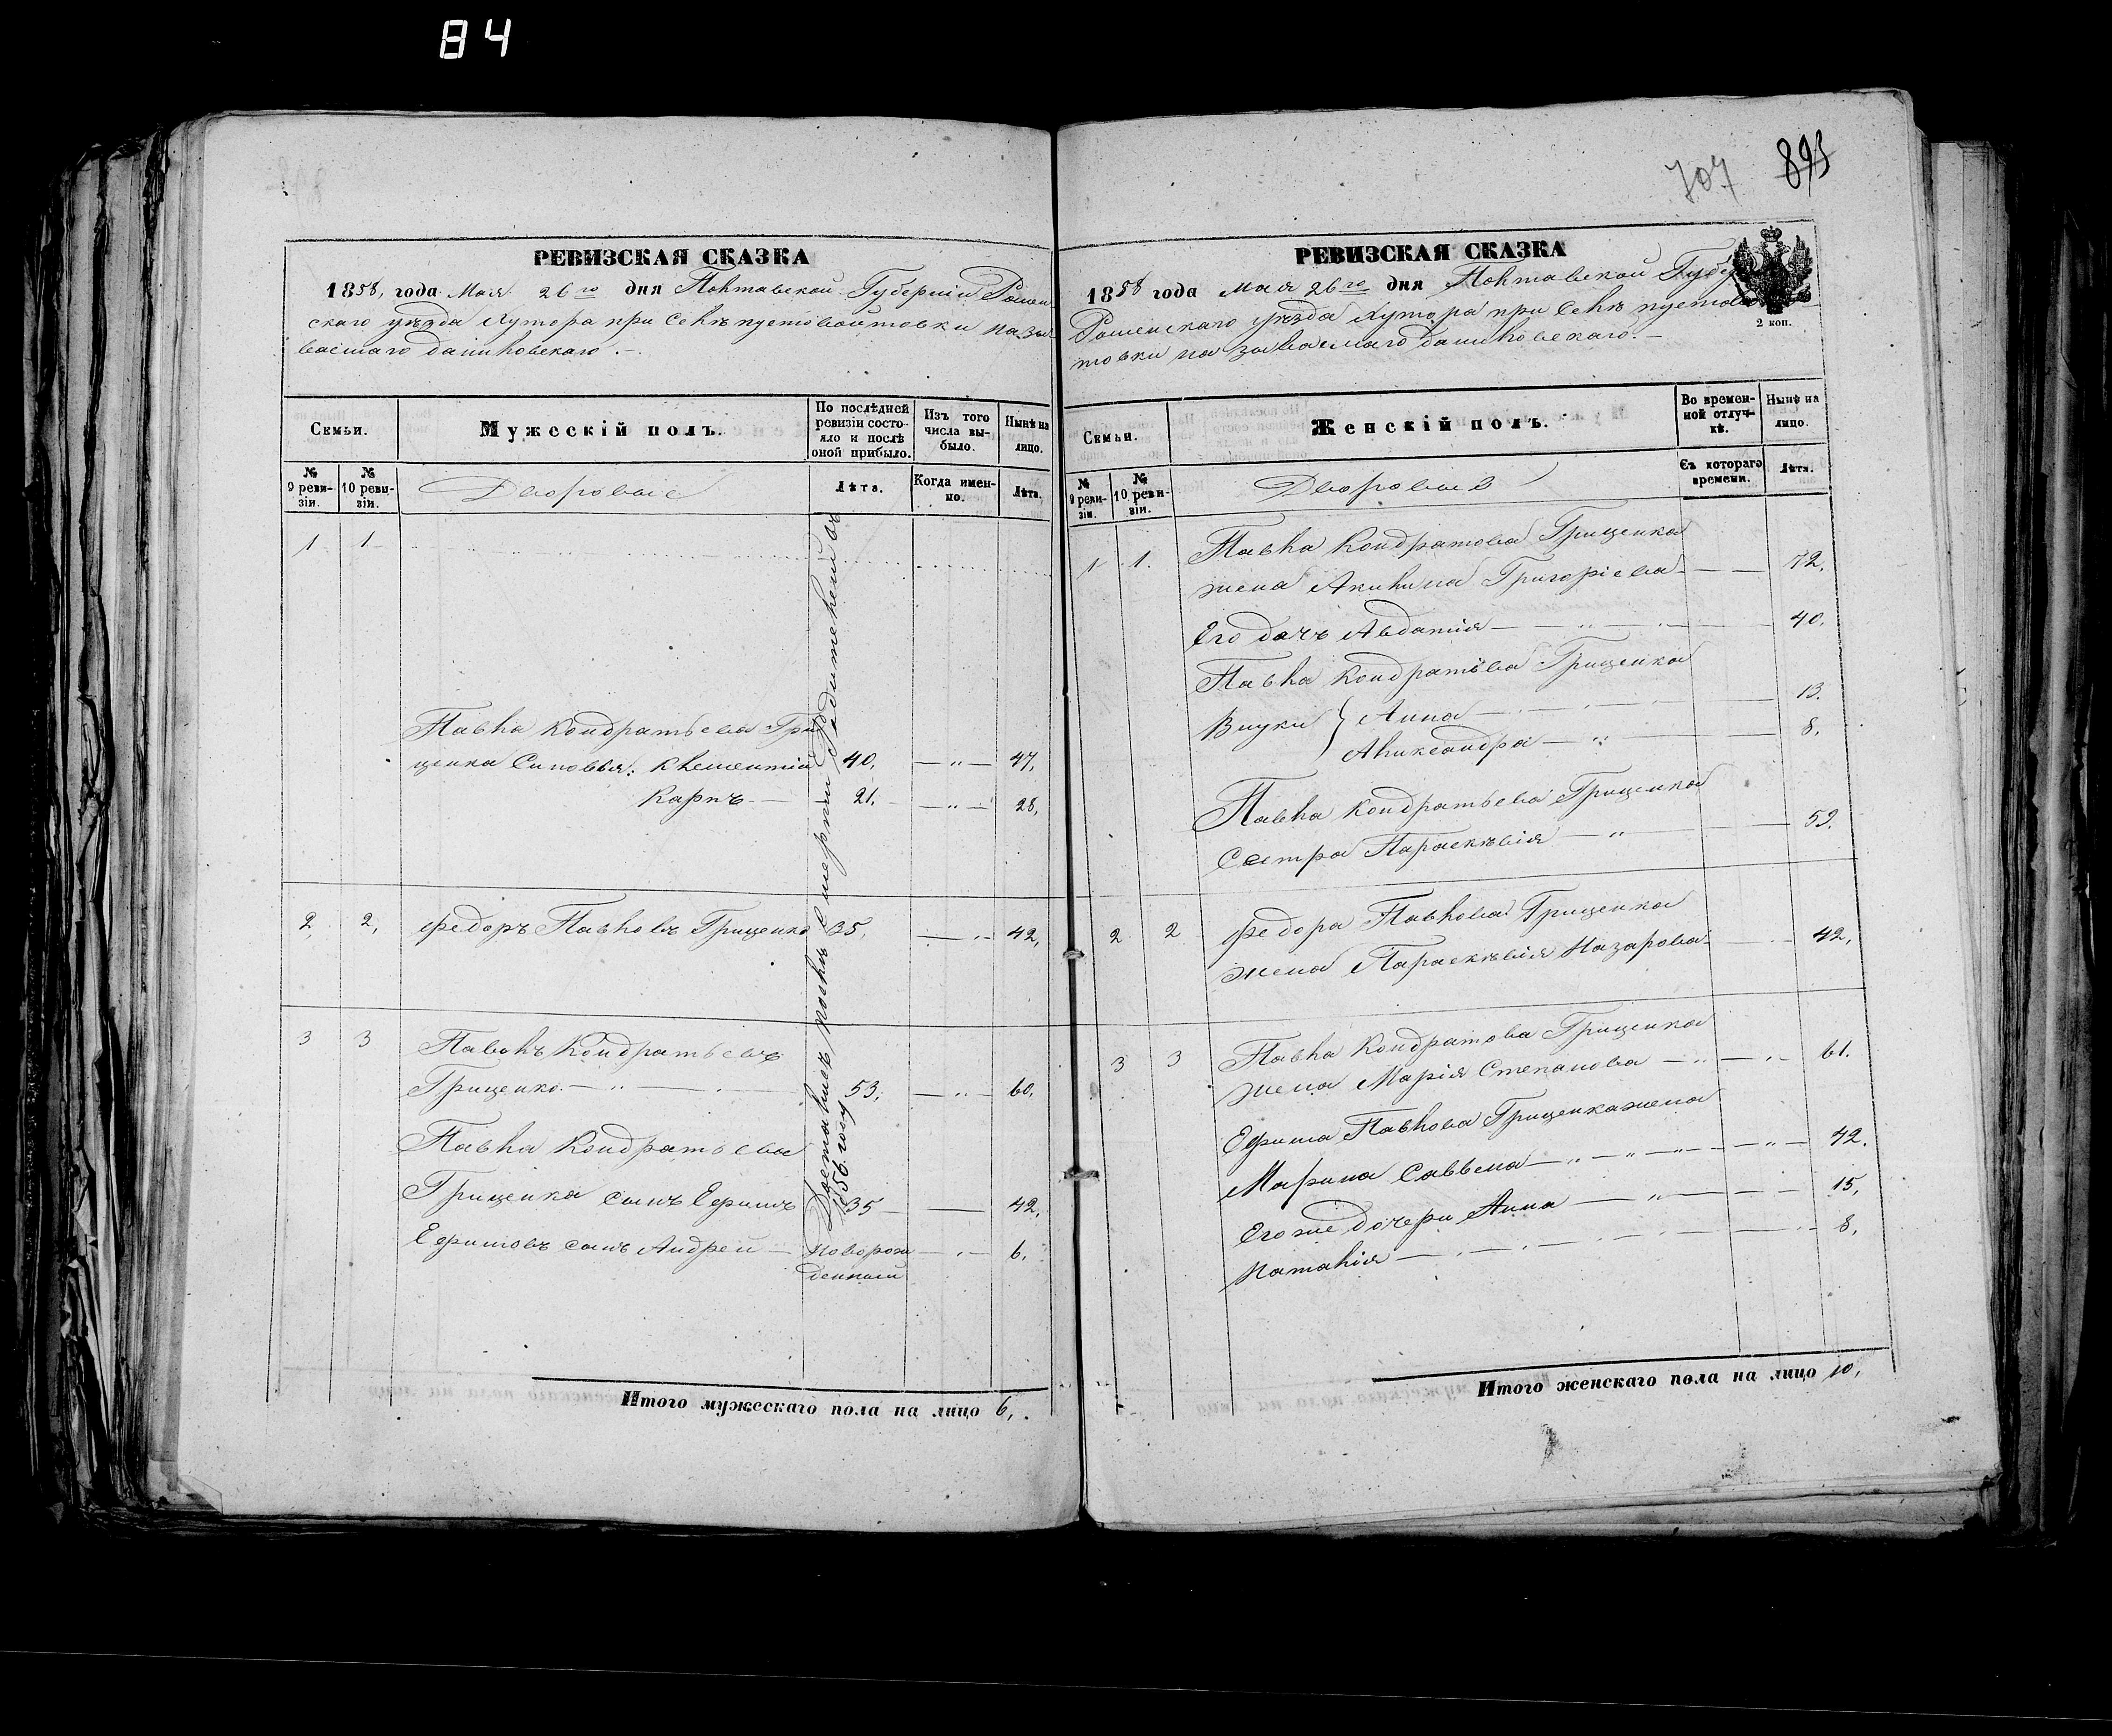 84
РЕВИЗСКАЯ СКАЗКА
1858, года Мая 26го дня Полтавской Губерніи Ромен
скаго уѣзда Хутора при Селѣ пустовойтовки назы
ваемаго даниловскаго.
Семьи.
Мужескій полъ.
По послѣдней ревизіи состояло и послѣ оной прибыло.
Изъ того числа выбыло.
Нынѣ на лицо.
№ 9 ревизіи.
№ 10 ревизіи.
Дворовые
Лѣта.
Когда именно.
Лѣта.
1 1
Павла Кондратьева Гри
щенка Сыновья: Клементій 40, — „ — 47,
Карпъ — 21. — „ — 28,
2, 2, Федоръ Павловъ Грищенко 35, — „ — 42,
3 3 Павелъ Кондратьевъ
Грищенко — „ — 53, — „ — 60,
Павла Кондратьева
Грищенка сынъ Ефимъ 35 — 42,
Ефимовъ сынъ Андрей — новорож — „ — 6,
денный
Достались послѣ смерти Родителей въ
1856 году
Итого мужескаго пола на лицо 6,
707 893
РЕВИЗСКАЯ СКАЗКА
1858 года мая 26го дня Полтавской Губер
2 коп.
Роменскаго уѣзда Хутора при Селѣ пустовой
товки называемаго даниловскаго. —
Семьи.
Женскій полъ.
Во временной отлучкѣ.
Нынѣ на лицо.
№ 9 ревизіи.
№ 10 ревизіи.
Дворовые
Съ котораго времени.
Лѣта.
1 1. Павла Кондратова Грищенка
жена Акилина Григоріева — — 72.
Его дочь Авдотія — „ — 40.
Павла Кондратьева Грищенка
Внуки Анна — 13.
Александра — „ — 8.
Павла Кондратьева Грищенка
Сестра Параскѣвія — „ — 59.
2 2 Федора Павлова Грищенка
жена Параскѣвія Назарова — 42,
3 3 Павла Кондратова Грищенка
жена Марія Степанова — „ — „ 61.
Ефима Павлова Грищенка жена
Марина Саввена — „ — „ — „ — 42.
Его же дочери Анна — „ — 15,
Наталія — 8,
Итого женскаго пола на лицо 10,